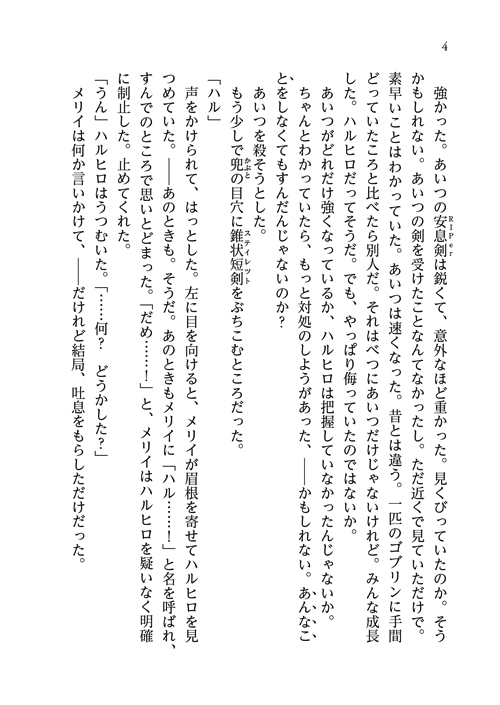 4
強かった。あいつの安息剣は鋭くて、意外なほど重かった。見くびっていたのか。そう
RIPer
かもしれない。あいつの剣を受けたことなんてなかったし。ただ近くで見ていただけで。
素早いことはわかっていた。あいつは速くなった。昔とは違う。一匹のゴブリンに手間
どっていたころと比べたら別人だ。それはべつにあいつだけじゃないけれど。みんな成長
した。ハルヒロだってそうだ。でも、やっぱり侮っていたのではないか。
あいつがどれだけ強くなっているか、ハルヒロは把握していなかったんじゃないか。
ちゃんとわかっていたら、もっと対処のしようがあった、――かもしれない。あんなこ
とをしなくてもすんだんじゃないのか？
あいつを殺そうとした。
もう少しで兜の目穴に錐状短剣をぶちこむところだった。
かぶと
スティレット
「ハル」
声をかけられて、はっとした。左に目を向けると、メリイが眉根を寄せてハルヒロを見
つめていた。――あのときも。そうだ。あのときもメリイに「ハル……！」と名を呼ばれ、
すんでのところで思いとどまった。「だめ……！」と、メリイはハルヒロを疑いなく明確
に制止した。止めてくれた。
「うん」ハルヒロはうつむいた。「……何？　どうかした？」
メリイは何か言いかけて、――だけれど結局、吐息をもらしただけだった。